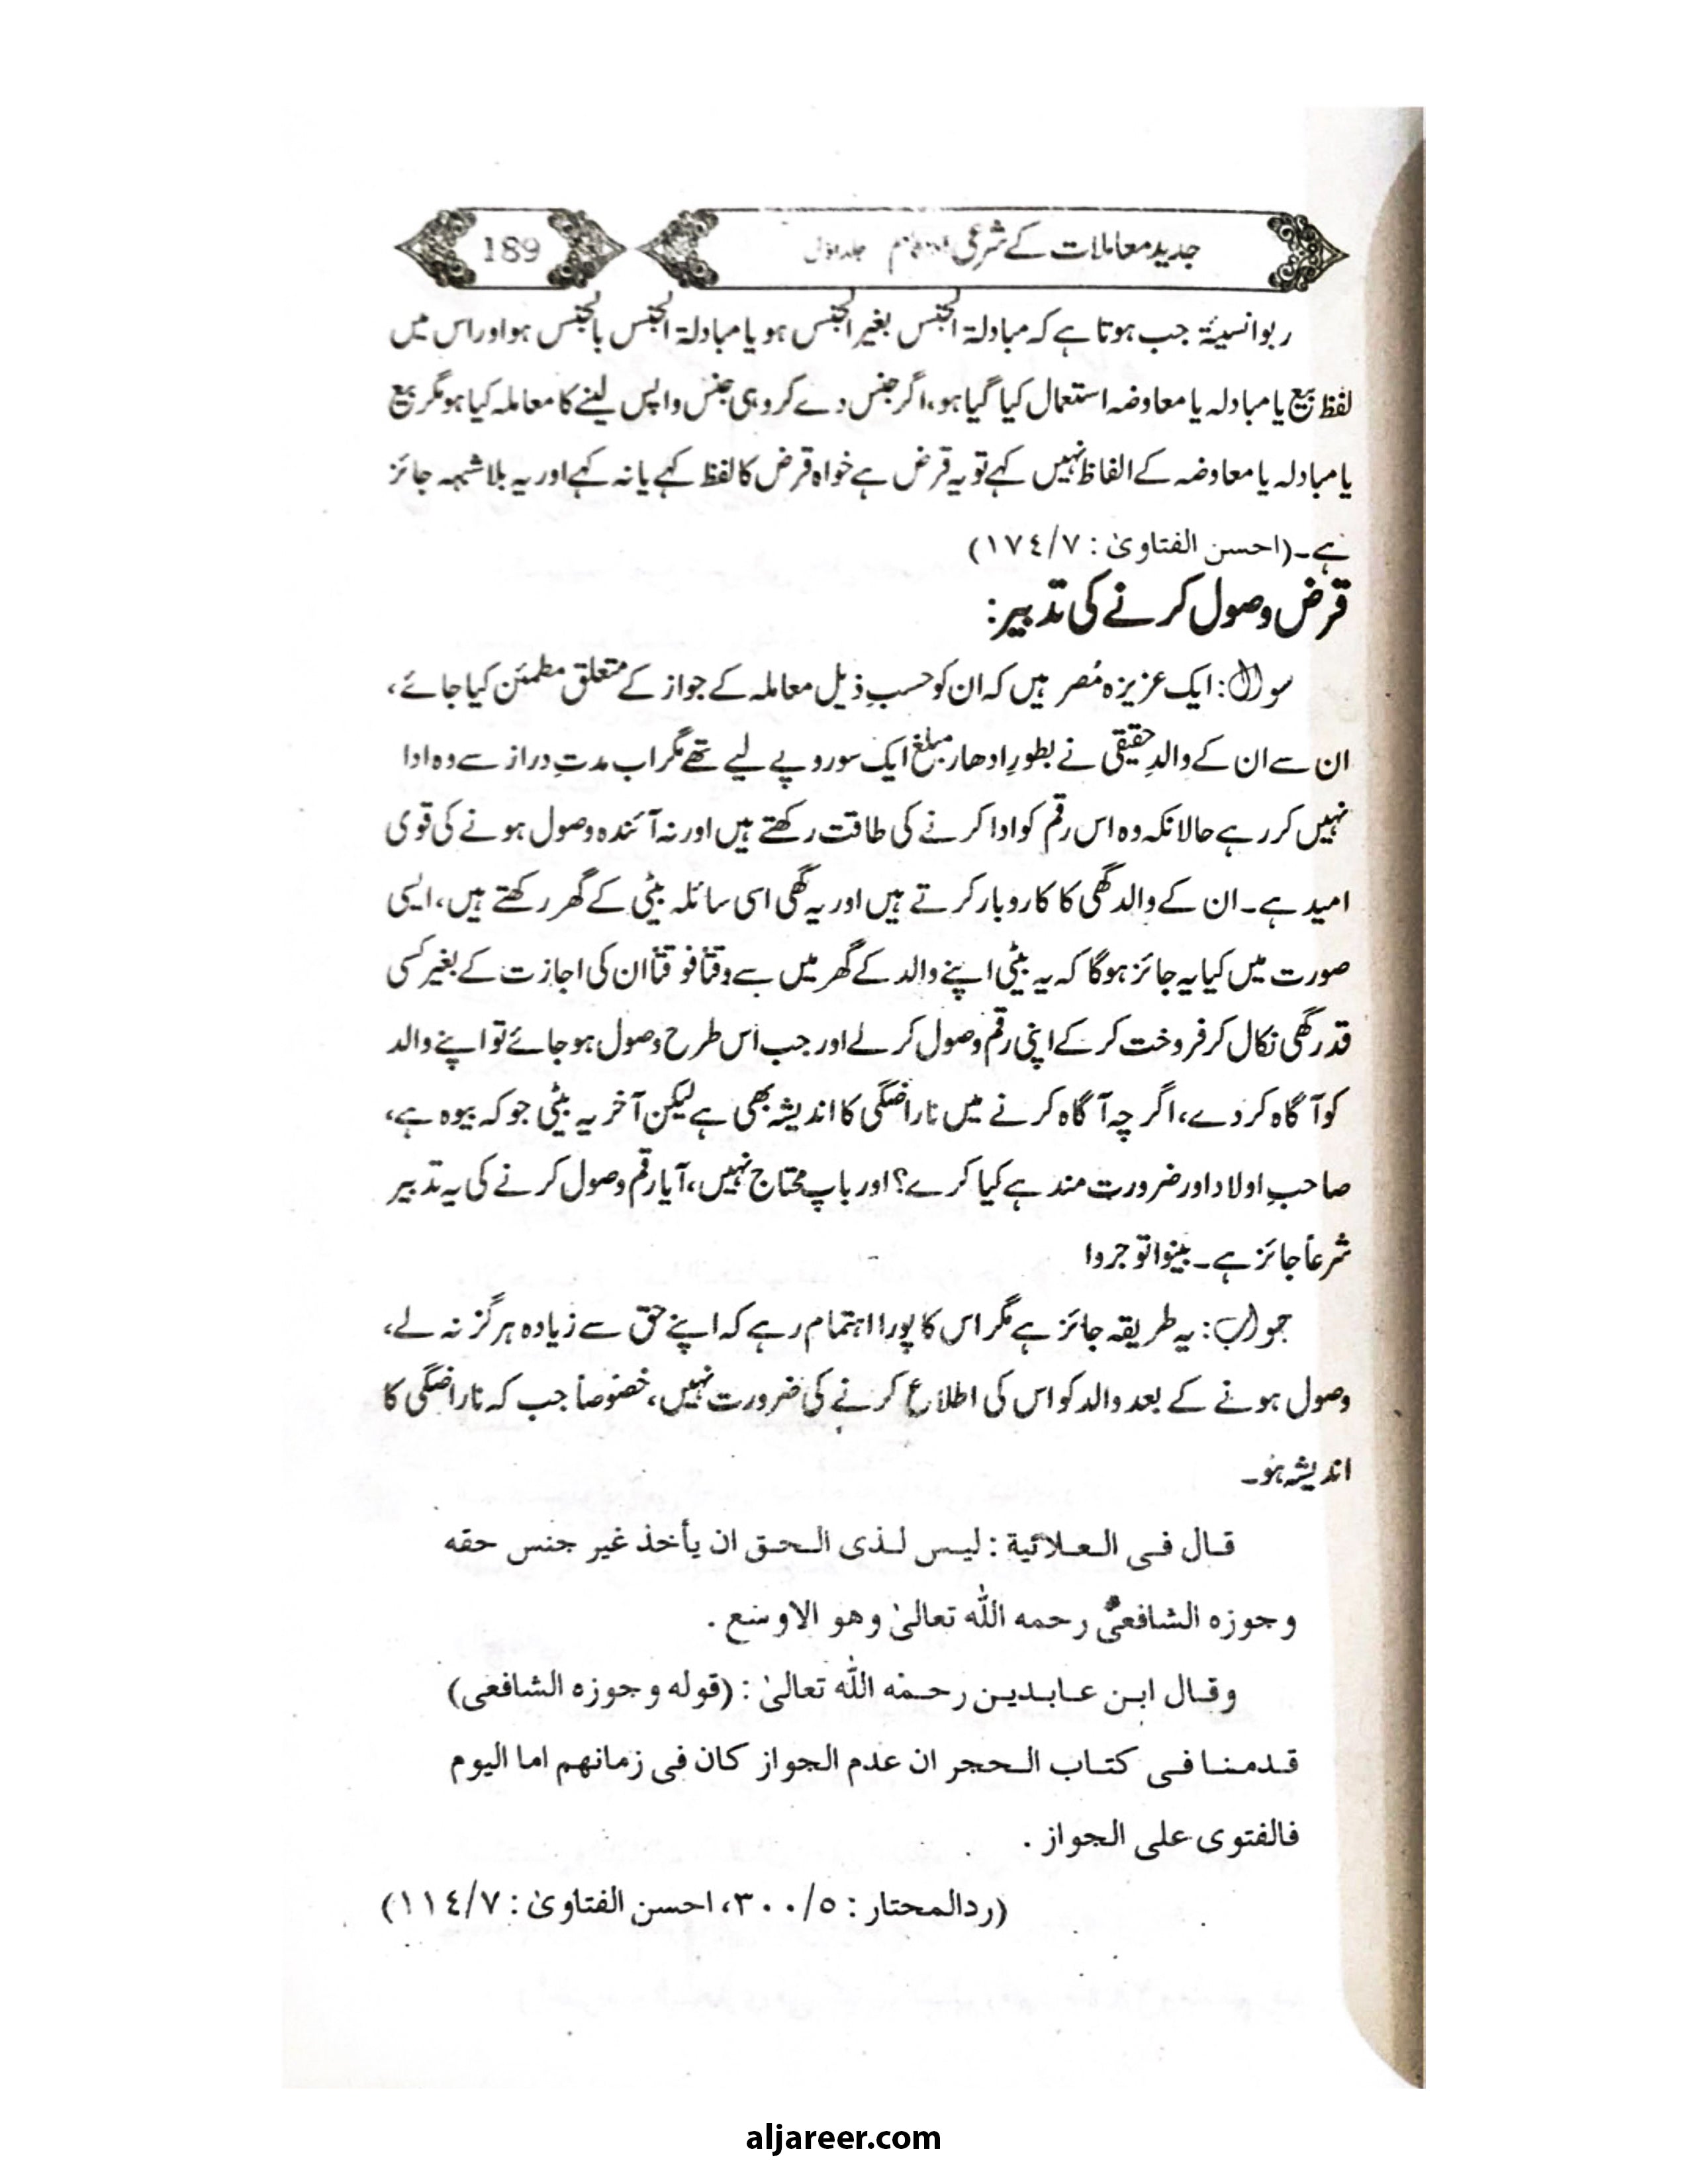 جدید معاملات کے شرعی احکام جلد اول 189
ربوا نسیئۃ جب ہوتا ہے کہ مبادلۃ الجنس بغیر الجنس ہو یا مبادلۃ الجنس بالجنس ہو اور اس میں
لفظ بیع یا مبادلہ یا معاوضہ استعمال کیا گیا ہو، اگر جنس دے کر وہی جنس واپس لینے کا معاملہ کیا ہو مگر بیع
یا مبادلہ یا معاوضہ کے الفاظ نہیں کہے تو یہ قرض ہے خواہ قرض کا لفظ کہے یا نہ کہے اور یہ بلا شبہہ جائز
ہے۔ (احسن الفتاویٰ : ١٧٤/٧)
قرض وصول کرنے کی تدبیر:
سوال: ایک عزیزہ مُصر ہیں کہ ان کو حسبِ ذیل معاملہ کے جواز کے متعلق مطمئن کیا جائے،
ان سے ان کے والدِ حقیقی نے بطورِ ادھار مبلغ ایک سو روپے لیے تھے مگر اب مدتِ دراز سے وہ ادا
نہیں کر رہے حالانکہ وہ اس رقم کو ادا کرنے کی طاقت رکھتے ہیں اور نہ آئندہ وصول ہونے کی قوی
امید ہے۔ ان کے والد گھی کا کاروبار کرتے ہیں اور یہ گھی اسی سائلہ بیٹی کے گھر رکھتے ہیں، ایسی
صورت میں کیا یہ جائز ہوگا کہ یہ بیٹی اپنے والد کے گھر میں سے وقتاً فوقتاً ان کی اجازت کے بغیر کسی
قدر گھی نکال کر فروخت کر کے اپنی رقم وصول کر لے اور جب اس طرح وصول ہو جائے تو اپنے والد
کو آگاہ کر دے، اگر چہ آگاہ کرنے میں ناراضگی کا اندیشہ بھی ہے لیکن آخر یہ بیٹی جو کہ بیوہ ہے،
صاحبِ اولاد اور ضرورت مند ہے کیا کرے؟ اور باپ محتاج نہیں، آیا رقم وصول کرنے کی یہ تدبیر
شرعاً جائز ہے۔ بینوا توجروا
جواب: یہ طریقہ جائز ہے مگر اس کا پورا اہتمام رہے کہ اپنے حق سے زیادہ ہرگز نہ لے،
وصول ہونے کے بعد والد کو اس کی اطلاع کرنے کی ضرورت نہیں، خصوصاً جب کہ ناراضگی کا
اندیشہ ہو۔
قال فی العلائیة : لیس لذی الحق ان یأخذ غیر جنس حقه
وجوزه الشافعیؒ رحمه الله تعالیٰ وهو الاوسع .
وقال ابن عابدین رحمه الله تعالیٰ : (قوله وجوزه الشافعی)
قدمنا فی کتاب الحجر ان عدم الجواز کان فی زمانهم اما الیوم
فالفتوی علی الجواز .
(ردالمحتار : ٣٠٠/٥، احسن الفتاویٰ : ١١٤/٧)
aljareer.com